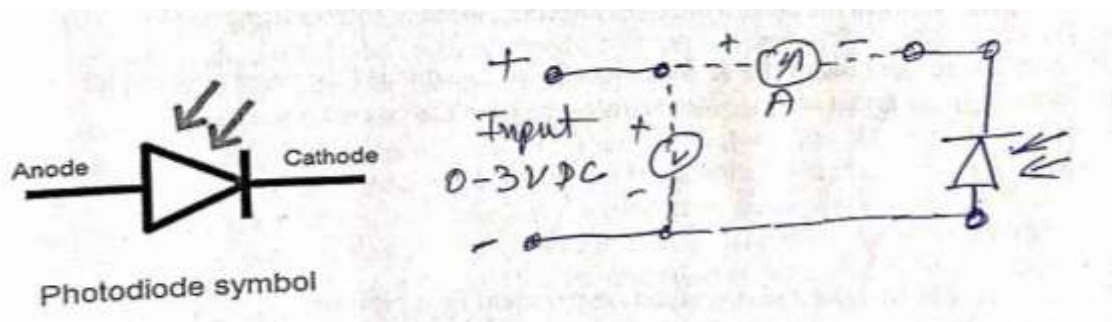 Anode
Cathode
Photodiode symbol
+
+
-
A
Input
0-3V DC
+
V
-
-